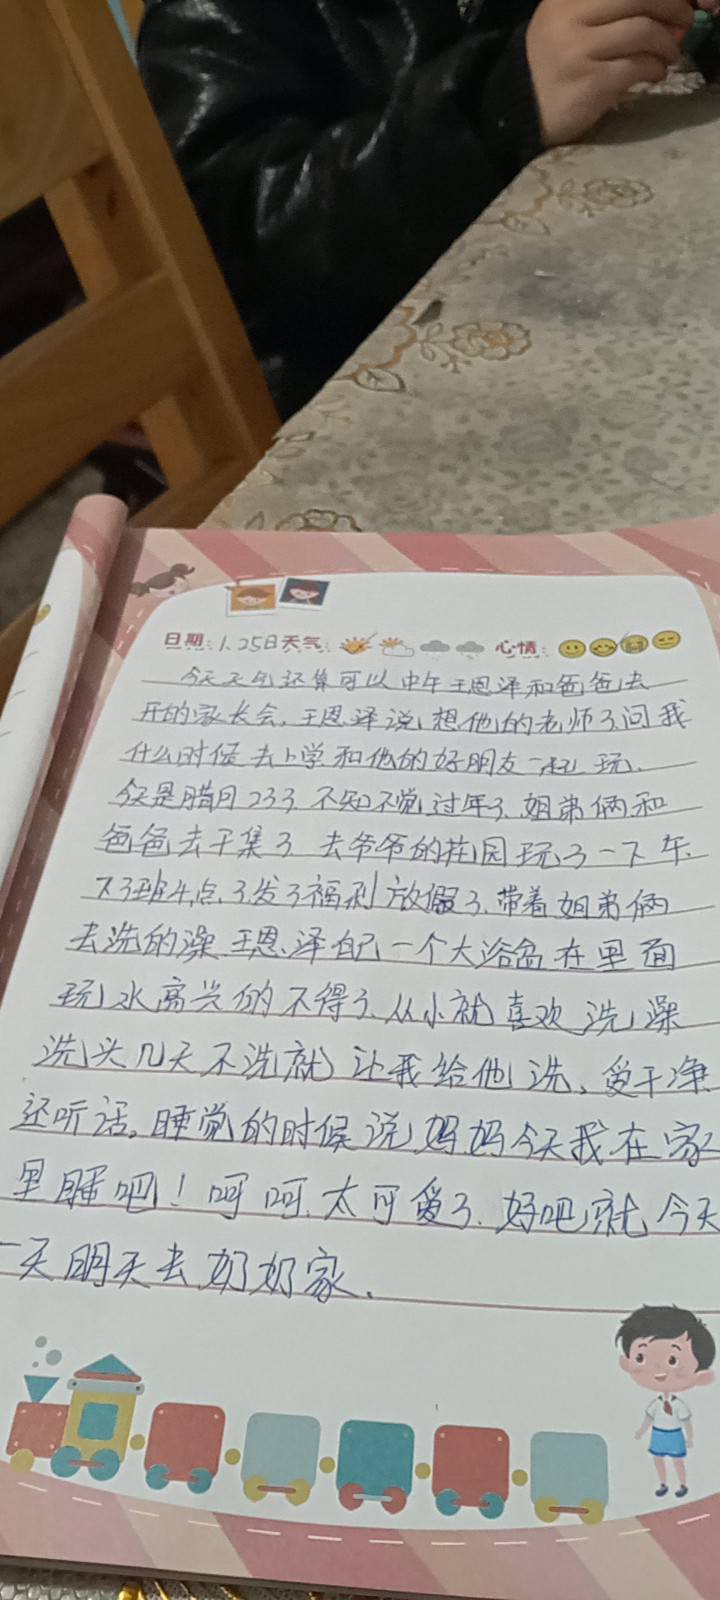 日期：1.25日天气： 心情：
今天天气还算可以中午王恩泽和爸爸去
开的家长会，王恩泽说想他的老师了，问我
什么时候去上学和他的好朋友一起玩．
今天是腊月23了 不知不觉过年了．姐弟俩和
爸爸去干集了 去爷爷的庄园玩了一下午．
下了班4点．了发了福利放假了．带着姐弟俩
去洗的澡 王恩．泽自己一个大浴盆在里面
玩水高兴的不得了．从小就喜欢洗澡
洗头几天不洗就让我给他洗，爱干净
还听话，睡觉的时候说妈妈今天我在家
里睡吧！呵呵．太可爱了．好吧就今天
一天明天去奶奶家．